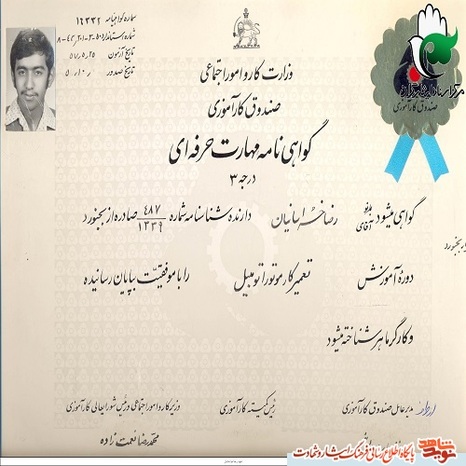 شماره گواهینامه ۱۶۳۳۲
شماره استاندارد
تاریخ آزمون
تاریخ صدور
وزارت کار و امور اجتماعی
صندوق کارآموزی
گواهی نامه مهارت حرفه ای
درجه ۳
صندوق کارآموزی
گواهی میشود
بانو
آقای
رضا
دارنده شناسنامه شماره ۴۸۷/۱۳۳۹ صادره از بجنورد
دوره آموزش تعمیرکار موتور اتومبیل را با موفقیت بپایان رسانیده
و کارگر ماهر شناخته میشود
مدیر عامل صندوق کارآموزی
رئیس کمیته کارآموزی
وزیر کار و امور اجتماعی و رئیس شورایعالی کارآموزی
محمدرضا نعمت زاده
نوید شاهد
پایگاه اطلاع رسانی فرهنگ ایثار و شهادت